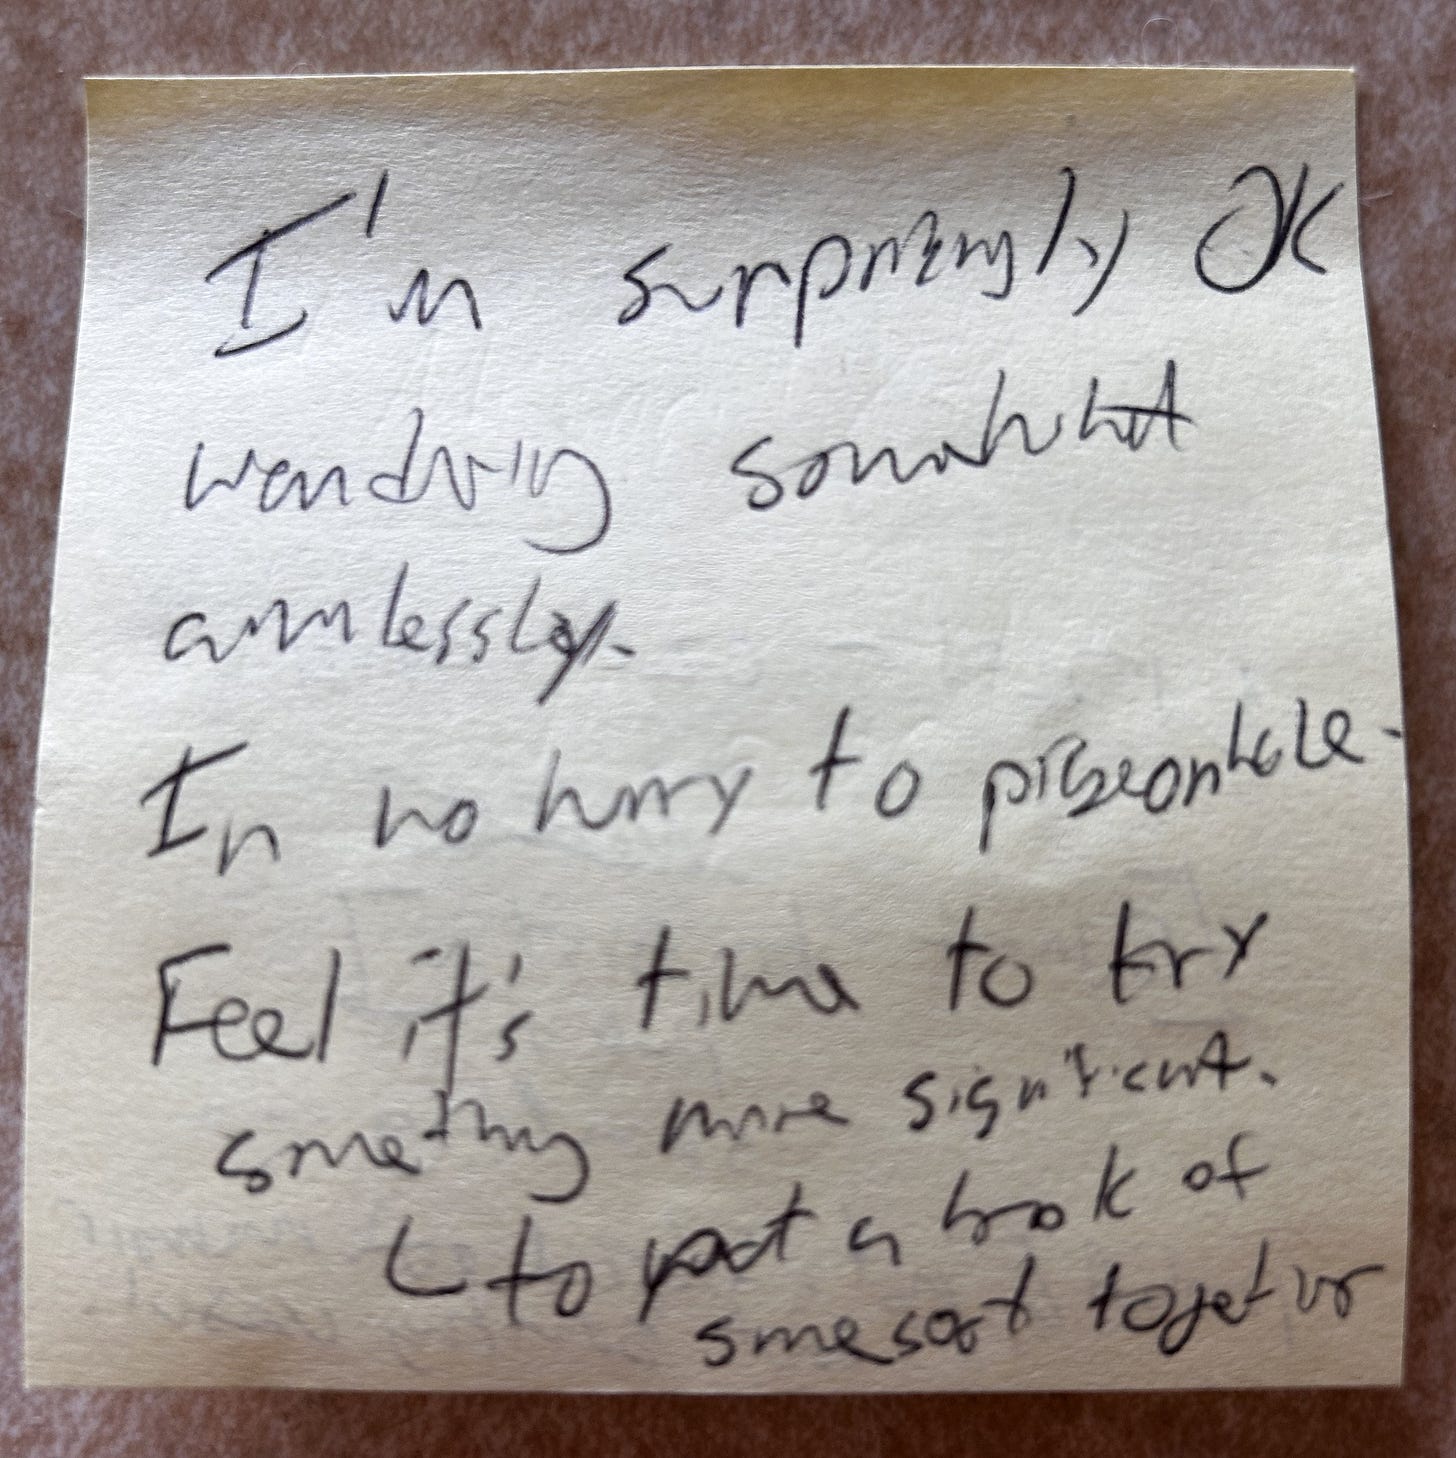 I'm surprizingly OK
wandring somewhat
aimlessly.
In no hurry to pigeonhole.
Feel it's time to try
something more significant.
to put a book of
some sort together